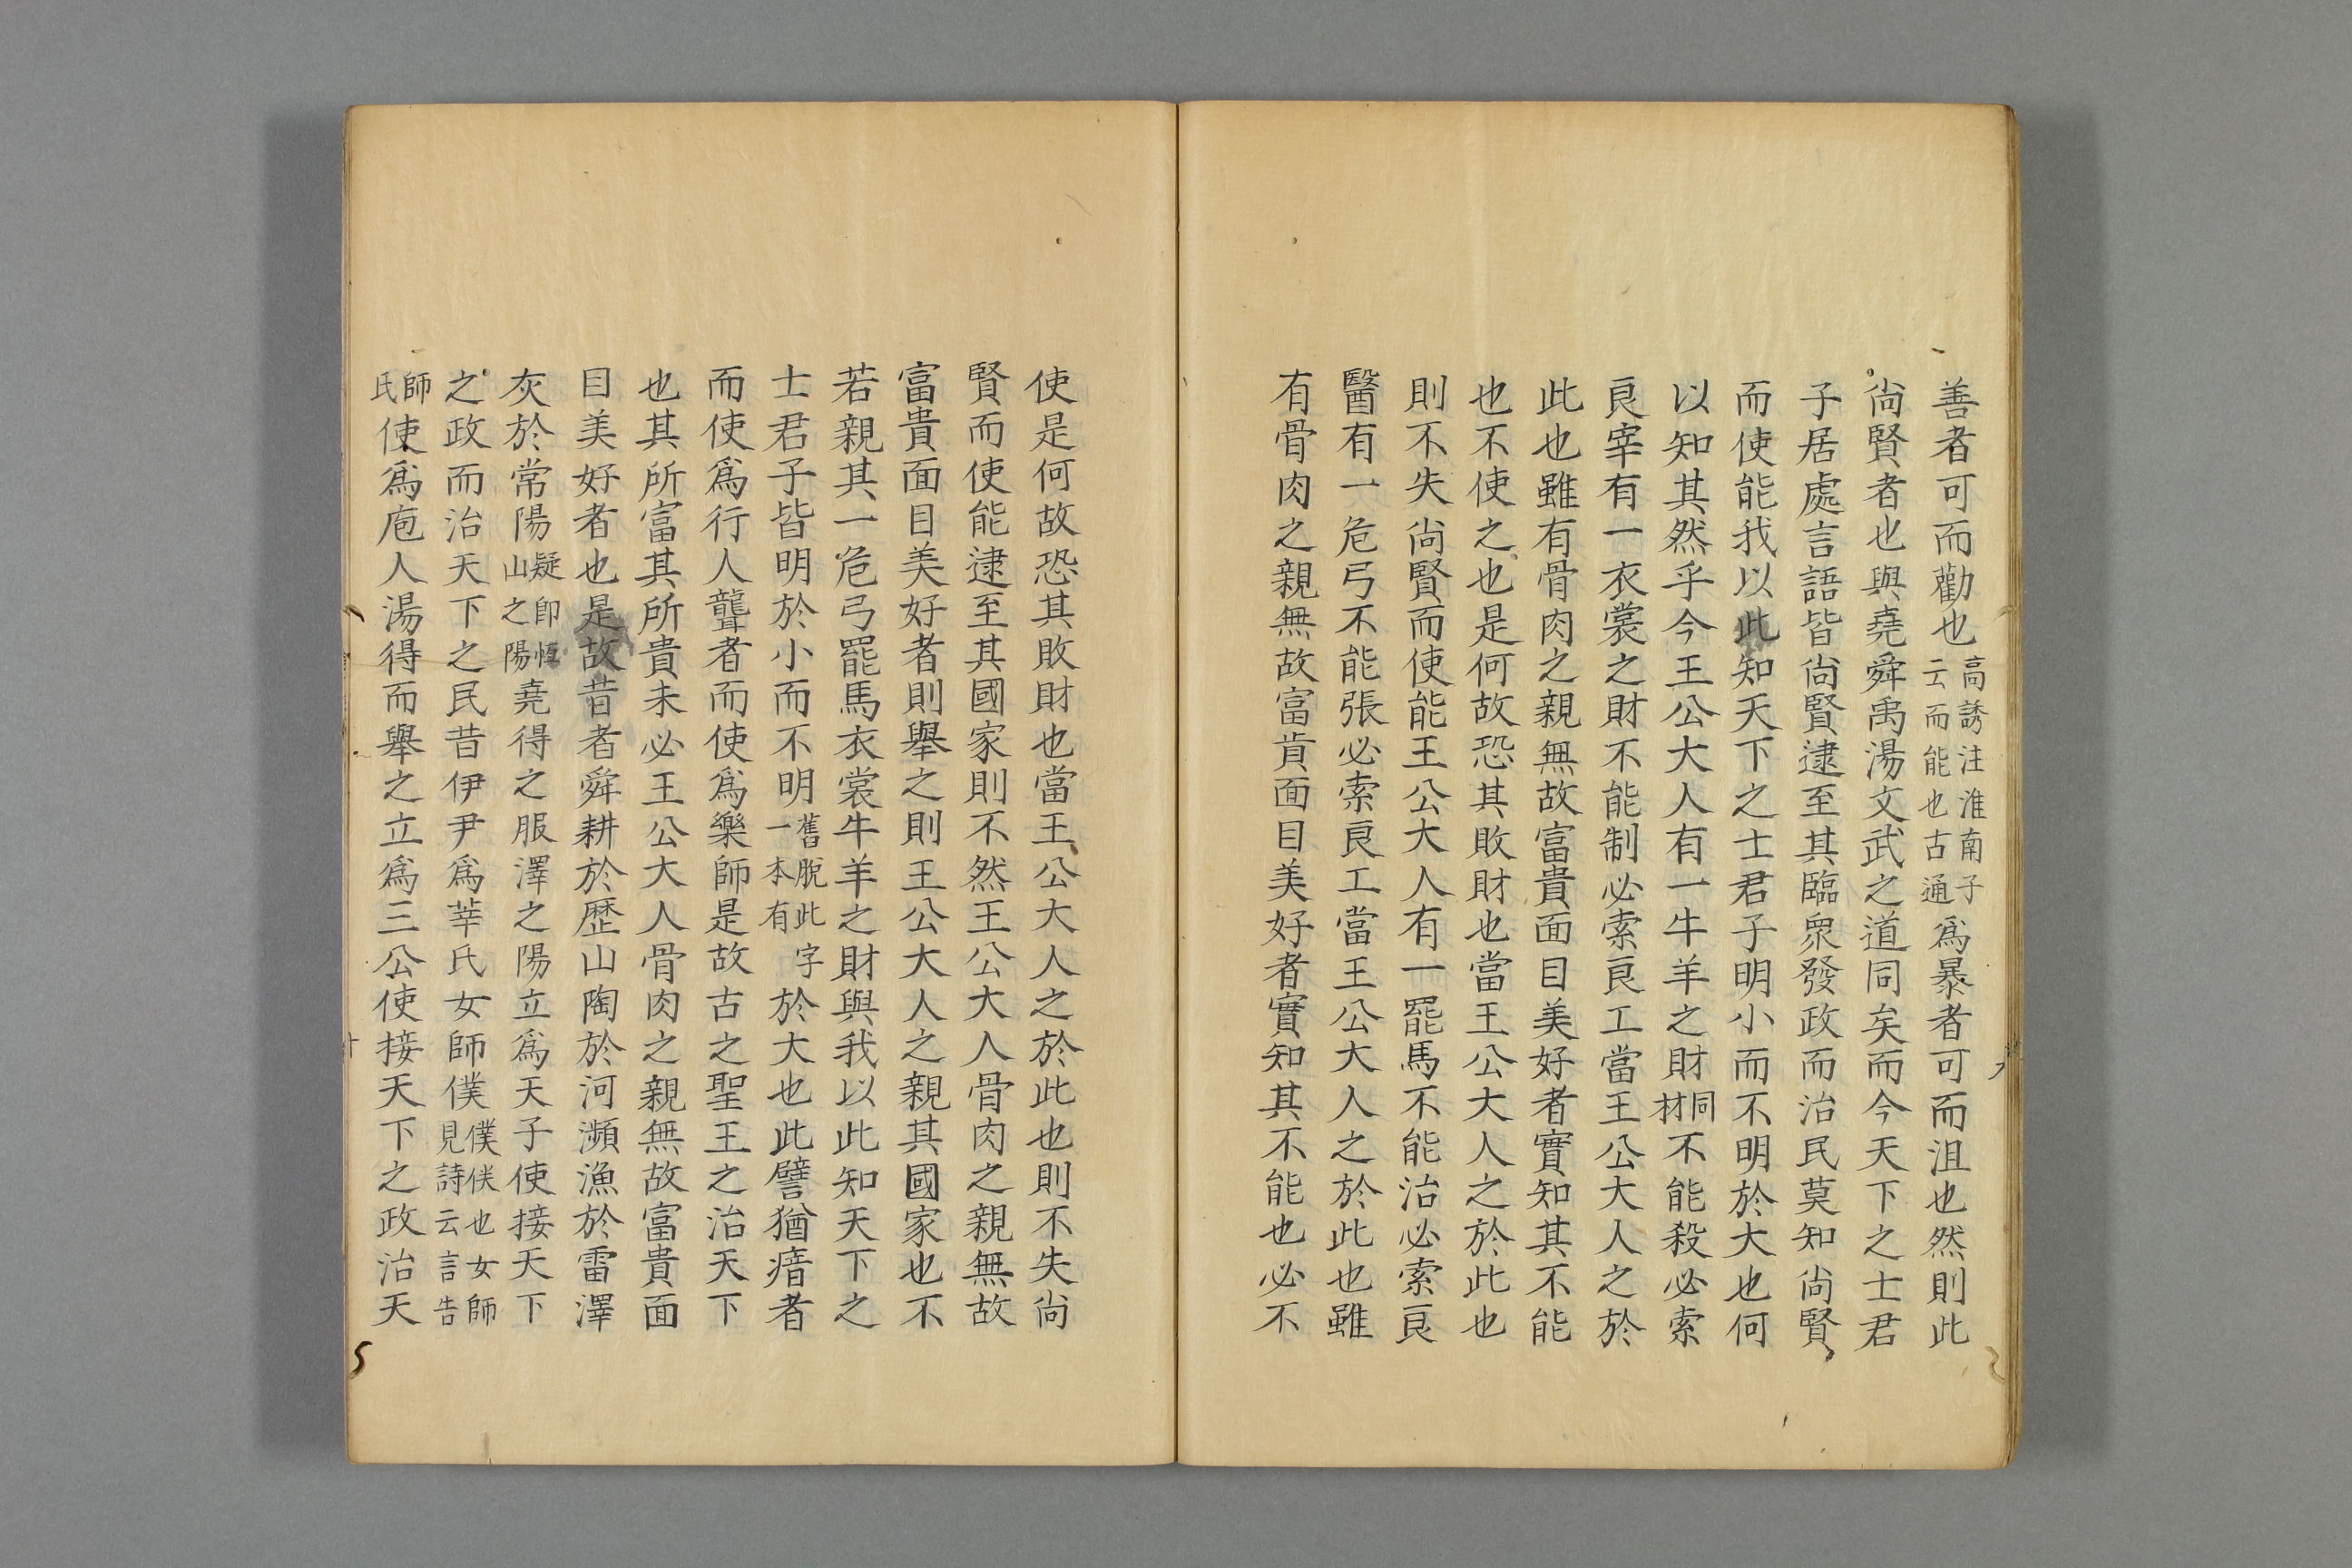 善者可而勸也高誘注淮南子云而能也古通爲暴者可而沮也然則此
尙賢者也與堯舜禹湯文武之道同矣而今天下之士君
子居處言語皆尙賢逮至其臨衆發政而治民莫知尙賢
而使能我以此知天下之士君子明小而不明於大也何
以知其然乎今王公大人有一牛羊之財同材不能殺必索
良宰有一衣裳之財不能制必索良工當王公大人之於
此也雖有骨肉之親無故富貴面目美好者實知其不能
也不使之也是何故恐其敗財也當王公大人之於此也
則不失尙賢而使能王公大人有一罷馬不能治必索良
醫有一危弓不能張必索良工當王公大人之於此也雖
有骨肉之親無故富肯面目美好者實知其不能也必不
使是何故恐其敗財也當王公大人之於此也則不失尙
賢而使能逮至其國家則不然王公大人骨肉之親無故
富貴面目美好者則舉之則王公大人之親其國家也不
若親其一危弓罷馬衣裳牛羊之財與我以此知天下之
士君子皆明於小而不明舊脫此字一本有於大也此譬猶瘖者
而使爲行人聾者而使爲樂師是故古之聖王之治天下
也其所富其所貴未必王公大人骨肉之親無故富貴面
目美好者也是故昔者舜耕於歷山陶於河瀕漁於雷澤
灰於常陽疑卽恆山之陽堯得之服澤之陽立爲天子使接天下
之政而治天下之民昔伊尹爲莘氏女師僕僕佚也女師見詩云言告
師氏使爲庖人湯得而舉之立爲三公使接天下之政治天